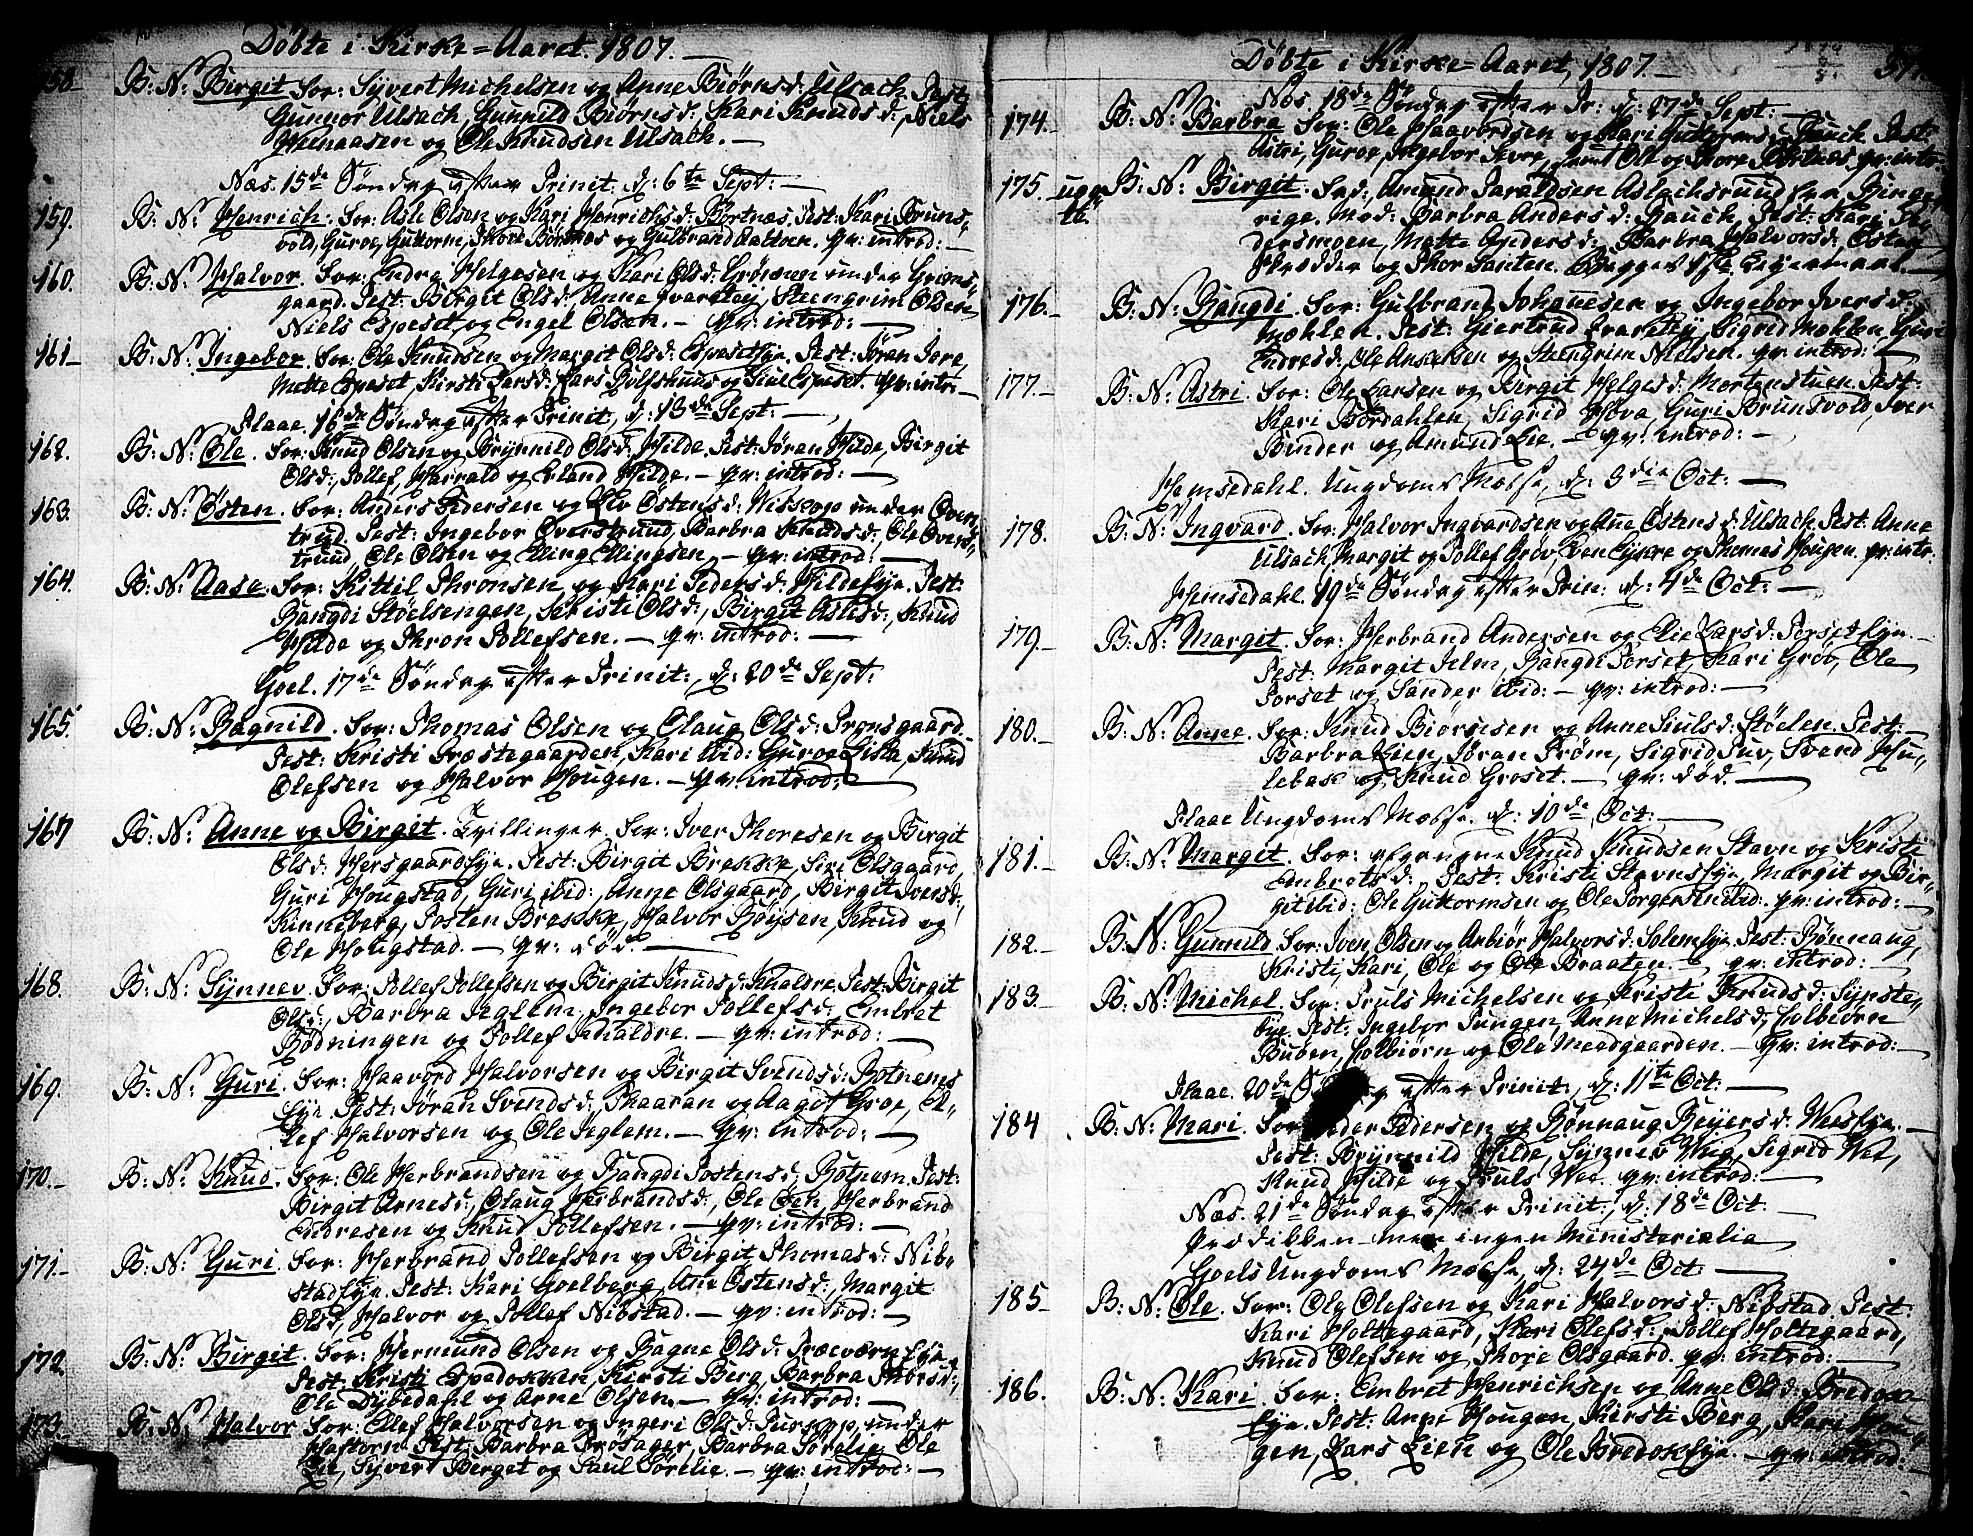 Döbte i Kirke-Aaret. 1807.
158. B: N: Birgit. For: Syvert Michelsen og Anne Biörnsd: Ulsach. Test:
Gunnor Ulsach, Gunnild Biörnsd: Kari Knudsd: Niels
og Ole Knudsen Ulsach.
Næs. 15de Söndag efter Trinit: d: 6te Sept:
159. B: N: Henrich. For: Asle Olsen og Kari Henrichsd: Bortnæs. Test: Kari Bruns-
vold, Guroe, Guttorm, Thore Bortnæs og Gulbrand Aattsen. qv: introd:
160. B: N: Halvor. For: Endre Helgesen og Kari Olsd: Grönæen under Grims-
gaard. Test: Birgit Olsd:, Anne Svarteig, Steengrim Olsen,
Niels Espeset og Engel Olsen. qv: introd:
161. B: N: Ingebor. For: Ole Knudsen og Margit Olsd: Espesetsye. Test: Jöran Jore,
Mette Espeset, Kirsti Larsd: Lars Rolfshuus og Siul Espeset. qv: intr:
Flaae. 16de Söndag efter Trinit: d: 13de Sept:
162. B: N: Ole. For: Knud Olsen og Brynnild Olsd: Hilde. Test: Jöran Hilde, Birgit
Olsd:, Tollef, Harrald og Erland Hilde. qv: introd:
163. B: N: Östen. For: Anders Pedersen og Eli Östensd: Wiskop under Övers-
trud. Test: Ingebor Överstruud, Barbra Knudsd:, Ole Övers-
truud, Ole Olsen og Elling Ellingsen. qv: introd:
164. B: N: Aase. For: Kittil Thronsen og Kari Pedersd: Hildesye. Test:
Rangdi Stöelsengen, Kristi Olsd:, Birgit Aslesd:, Knud
Hilde og Thron Tollefsen. qv: introd:
Goel. 17de Söndag efter Trinit:, d: 20de Sept:
165. B: N: Ragnild. For: Thomas Olsen og Olaug Olsd: Tronsgaard.
Test: Kristi Præstegaarden, Kari ibid: Guroe Lisla, Knud
Olefsen og Halvor Hougen. qv: introd:
167 B: N: Anne og Birgit. Tvillinger. For: Iver Thoresen og Birgit
Olsd: Hersgaardsye. Test: Birgit Brekke, Siri Olsgaard,
Guri Hougstad, Guri ibid:, Anne Olsgaard, Birgit Iversd:,
Kinneberg, Tosten Brekke, Halvor Röysen, Knud og
Ole Hougstad. qv: död.
168. B: N: Synnev. For: Tollef Tollefsen og Birgit Knudsd: Skaldre. Test: Birgit
Olsd:, Barbra Jeglem, Ingebor Tollefsd: Embret
Rödningen og Tollef Skaldre. qv: introd:
169. B: N: Guri. For: Haavord Halvorsen og Birgit Svendsd: Rotnems
Eye. Test: Jöran Svendsd:, Thaaran og Aagot Groe, O-
lef Halvorsen og Ole Jeglem. qv: introd:
170. B: N: Knud. For: Ole Herbrandsen og Rangdi Tostensd: Rotnem. Test:
Birgit Arnesd:, Olaug Herbrandsd:, Ole Öen, Herbrand
Endresen og Knut Tollefsen. qv: introd:
171. B: N: Guri. For: Herbrand Tollefsen og Birgit Thomasd: Nib-
stadsye. Test: Kari Goelberg, Ane Östensd:, Margit
Olsd, Halvor og Tollef Nibstad. qv: introd:
172. B: N: Birgit. For: Hermund Olsen og Ragne Olsd: Træeværnsye.
Test: Kristi Espedokken, Kirsti Berg, Barbra Thorsd:,
Ole Dybedahl og Arne Olsen. qv: introd:
173. B: N: Halvor For: Ellef Halvorsen og Ingeri Olsd: under
Haftorn. Test: Barbra Brösager, Barbra Sörelie, Ole
Lie, Syvert Berget og Paul Sörelie. qv: introd:
Döbte i Kirke-Aaret, 1807.
Næs. 18de Söndag efter Tr: d: 27de Sept:
174. B: N: Barbra For: Ole Haavordsen og Kari Guttormsd: Rauch. Test:
Astri, Guroe, Ingebor Sevre, samt Ole og Thore Bortnæs qv: intr:
175. uægte. B: N: Birgit. Fad: Amund Haraldsen Aslachsruud fra Ringe-
rige. Mod: Barbra Andersd: Rauch. Test: Kari Pe-
dersmoen, Mette Andersd: Barbra Halvorsd: Östen
Skrædder og Thor Santen. Begges 1ste Leyermaal.
176. B: N: Rangdi. For: Gulbrand Johansen og Ingebor Iversd:
Moehlen. Test: Giertrud Svarteig, Sigrid Moehlen, Guri
Endresd:, Ole Anskesen og Steengrim Nielsen. qv: introd:
177. B: N: Astri. For: Ole Larsen og Birgit Helgesd: Mortenstuen. Test:
Kari Bördahlen, Sigrid Hova, Guri Brunsvold, Iver
Binder og Amund Lie. qv: introd:
Hemsedahl. Ungdoms Messe, d: 3die Oct:
178. B: N: Ingvard. For: Halvor Ingvardsen og Ane Östensd: Ulsach. Test: Anne
Ulsach, Margit og Tollef Gröv, Even Eykre og Thomas Hougen. qv: intr:
Hemsedahl. 19de Söndag efter Trin: d: 4de Oct:
179. B: N: Margit. For: Herbrand Andersen og Elie Larsd: Torsetsye.
Test: Margit Jelm, Rangdi Torset, Kari Gröv, Ole
Torset og Sander ibid: qv: introd:
180. B: N: Anne. For: Knud Biörnsen og Anne Siulsd: Stöelen. Test:
Barbra Lien, Jöran Tröm, Sigrid Tuv, Svend Hu-
lebak og Knud Groset. qv: död.
Flaae Ungdoms Messe. d: 10de Oct:
181. B: N: Margit. For: Knud Knudsen Stavn og Kristi
Embretsd: Test: Kristi Stavnsye, Margit og Bir-
git ibid: Ole Guttormsen og Ole Torgersen ibid: qv: introd:
182. B: N: Gunnild For: Iven Olsen og Anbiör Halvorsd: Solemsye. Test: Rönnaug,
Kristi, Kari, Ole og Ole Braaten. qv: introd:
183. B: N: Michel. For: Truls Michelsen og Kristi Knudsd: Synste-
bye. Test: Ingebor Tungen, Anne Michelsd:, Kolbiörn
Ruben, Kolbiörn og Ole Meedgaarden. qv: introd:
Flaae. 20de efter Trinit:, d: 11te Oct:
184 B: N: Mari. For: Peder Pedersen og Rönnaug Reyersd: Weesye.
Test: Brynnild Hilde, Synnev Wiig, Sigrid Wee,
Knud Hilde og Truls Wee. qv: introd:
Næs. 21de Söndag efter Trinit:, d: 18de Oct:
Prædikken men ingen Ministerialia
Goels Ungdoms Messe, d: 24de Oct:
185. B: N: Ole. For: Ole Olefsen og Kari Halvorsd: Nibstad. Test:
Kari Holtegaard, Kari Olefsd: Tollef Holtegaard,
Knud Olefsen og Thore Olsgaard. qv: introd:
186. B: N: Kari. For: Embret Henrichsen og Anne Olsd: Bredok-
Eye. Test: Anne Hougen, Kirsti Berg, Kari Hou-
gen, Lars Lien og Ole Bredoksye. qv: introd: